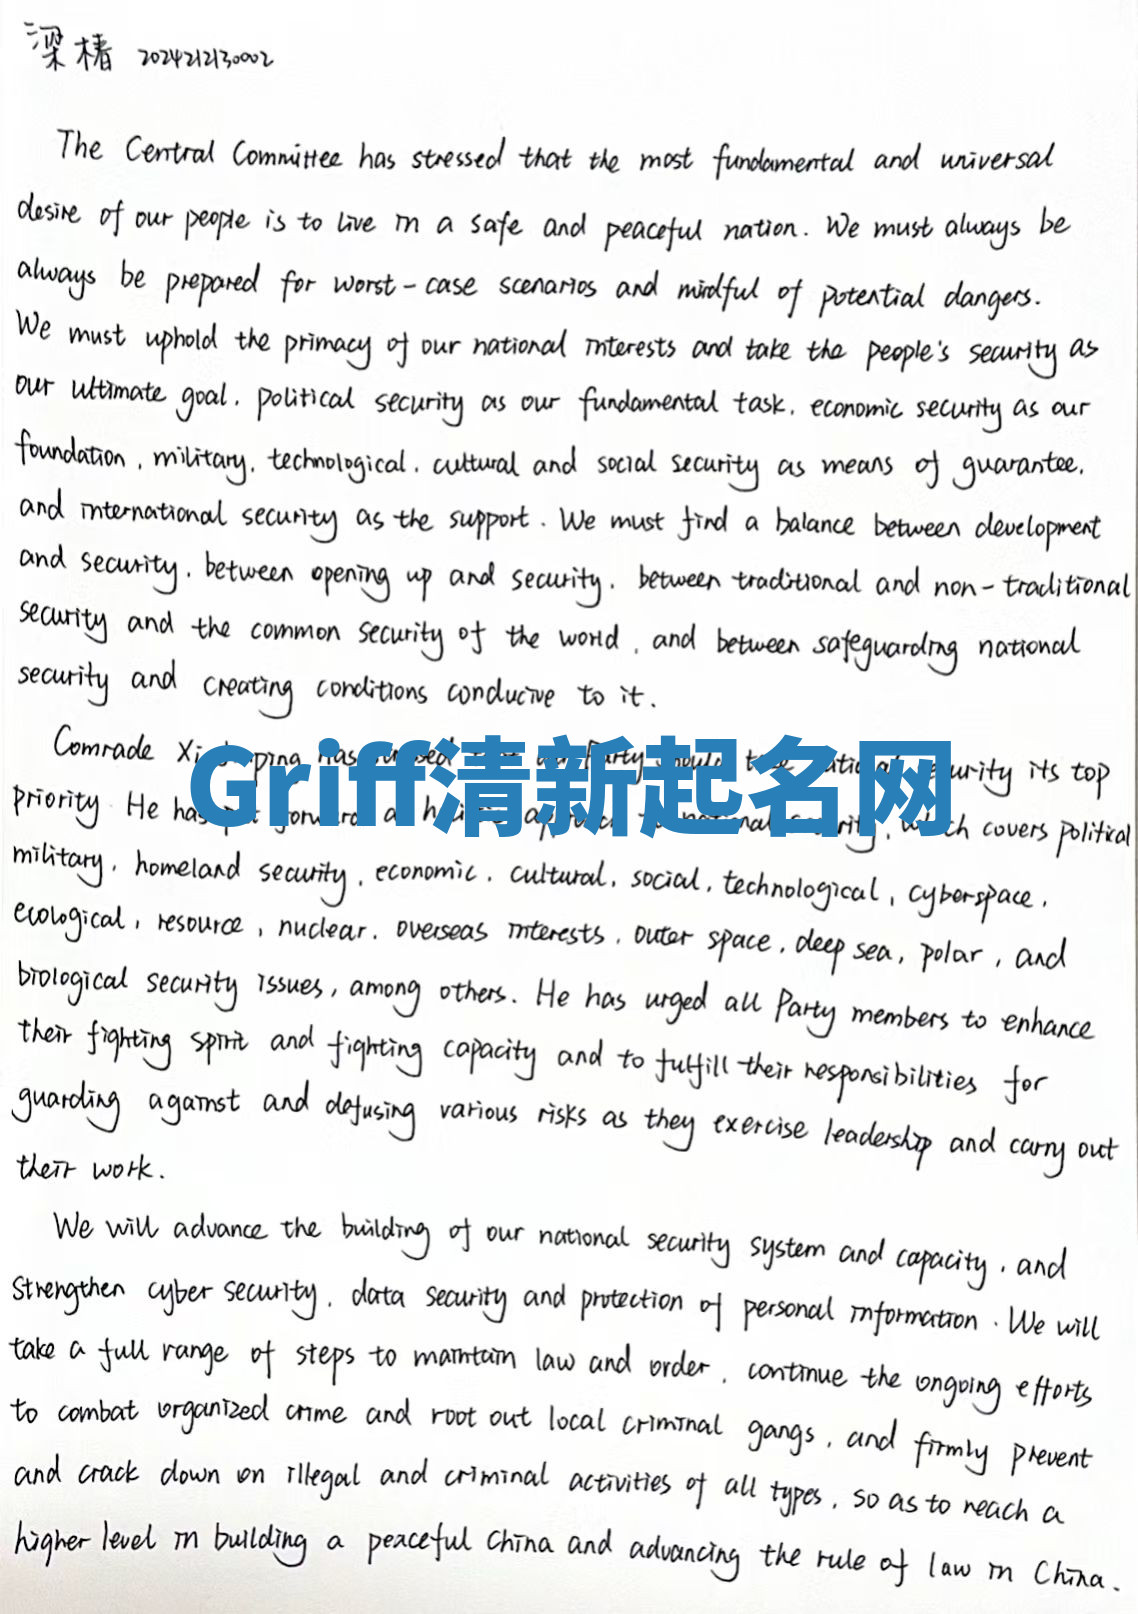 梁椿 2024212130002
The Central Committee has stressed that the most fundamental and universal
desire of our people is to live in a safe and peaceful nation. We must always be
always be prepared for worst-case scenarios and mindful of potential dangers.
We must uphold the primacy of our national interests and take the people's security as
our ultimate goal, political security as our fundamental task, economic security as our
foundation, military, technological, cultural and social security as means of guarantee,
and international security as the support. We must find a balance between development
and security, between opening up and security, between traditional and non-traditional
security and the common security of the world, and between safeguarding national
security and creating conditions conducive to it.
Comrade Xi has Party its top
Griff清新起名网
priority. He has which covers political
military, homeland security, economic, cultural, social, technological, cyberspace,
ecological, resource, nuclear, overseas interests, outer space, deep sea, polar, and
biological security issues, among others. He has urged all Party members to enhance
their fighting spirit and fighting capacity and to fulfill their responsibilities for
guarding against and defusing various risks as they exercise leadership and carry out
their work.
We will advance the building of our national security system and capacity, and
strengthen cyber security, data security and protection of personal information. We will
take a full range of steps to maintain law and order, continue the ongoing efforts
to combat organized crime and root out local criminal gangs, and firmly prevent
and crack down on illegal and criminal activities of all types, so as to reach a
higher level in building a peaceful China and advancing the rule of law in China.